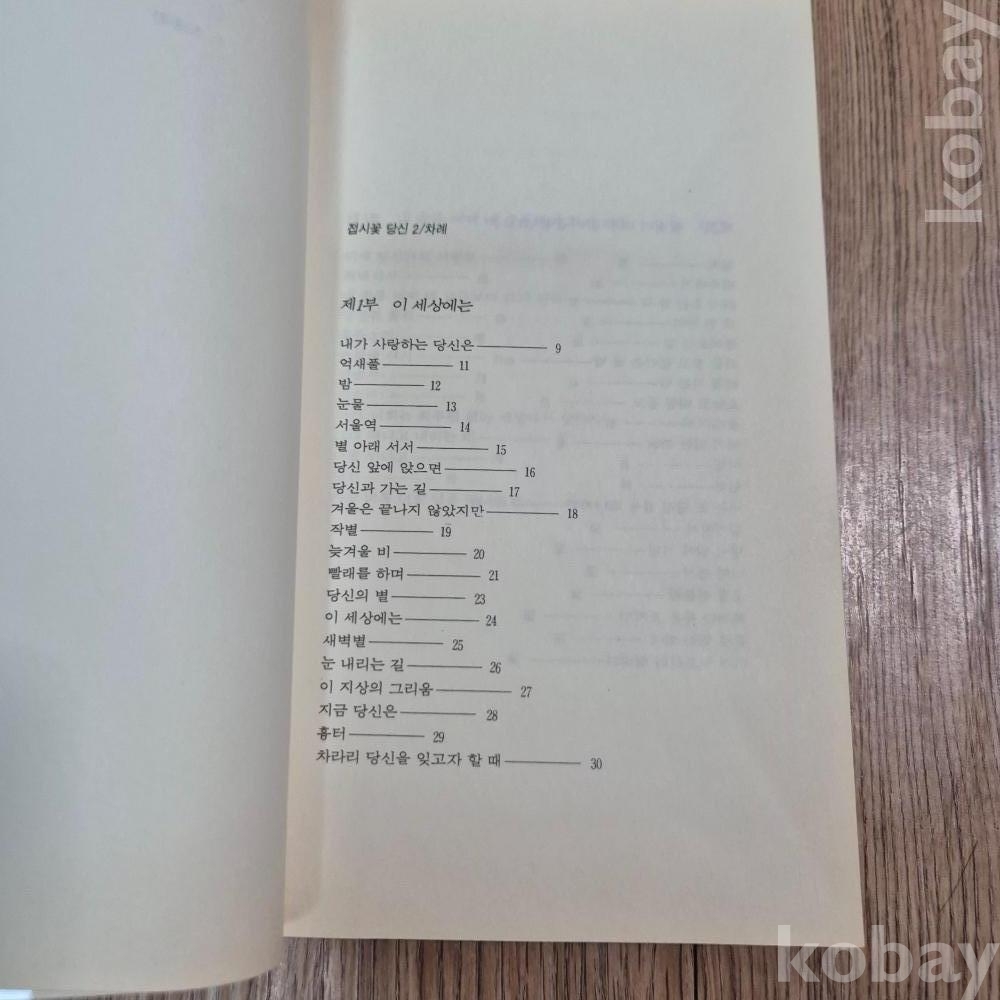 kobay
접시꽃 당신 2/차례
제1부 이 세상에는
내가 사랑하는 당신은 9
억새풀 11
밤 12
눈물 13
서울역 14
별 아래 서서 15
당신 앞에 앉으면 16
당신과 가는 길 17
겨울은 끝나지 않았지만 18
작별 19
늦겨울 비 20
빨래를 하며 21
당신의 별 23
이 세상에는 24
새벽별 25
눈 내리는 길 26
이 지상의 그리움 27
지금 당신은 28
흉터 29
차라리 당신을 잊고자 할 때 30
kobay